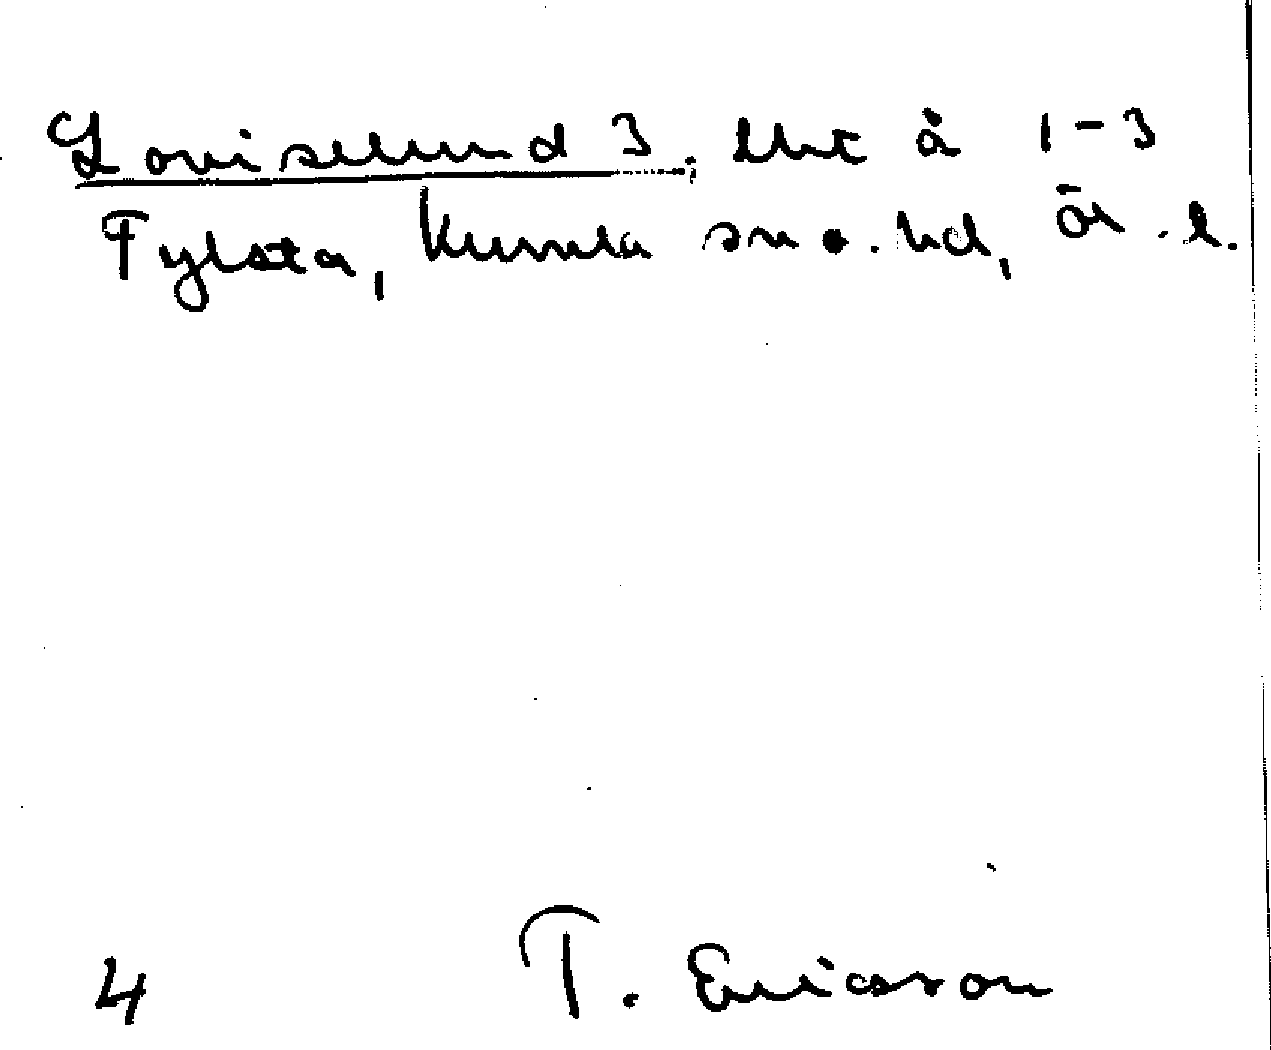 Loviselund 3. lht å 1-3
Fylsta, Kumla sn o. hd, ör. l.
4 T. Ericsson